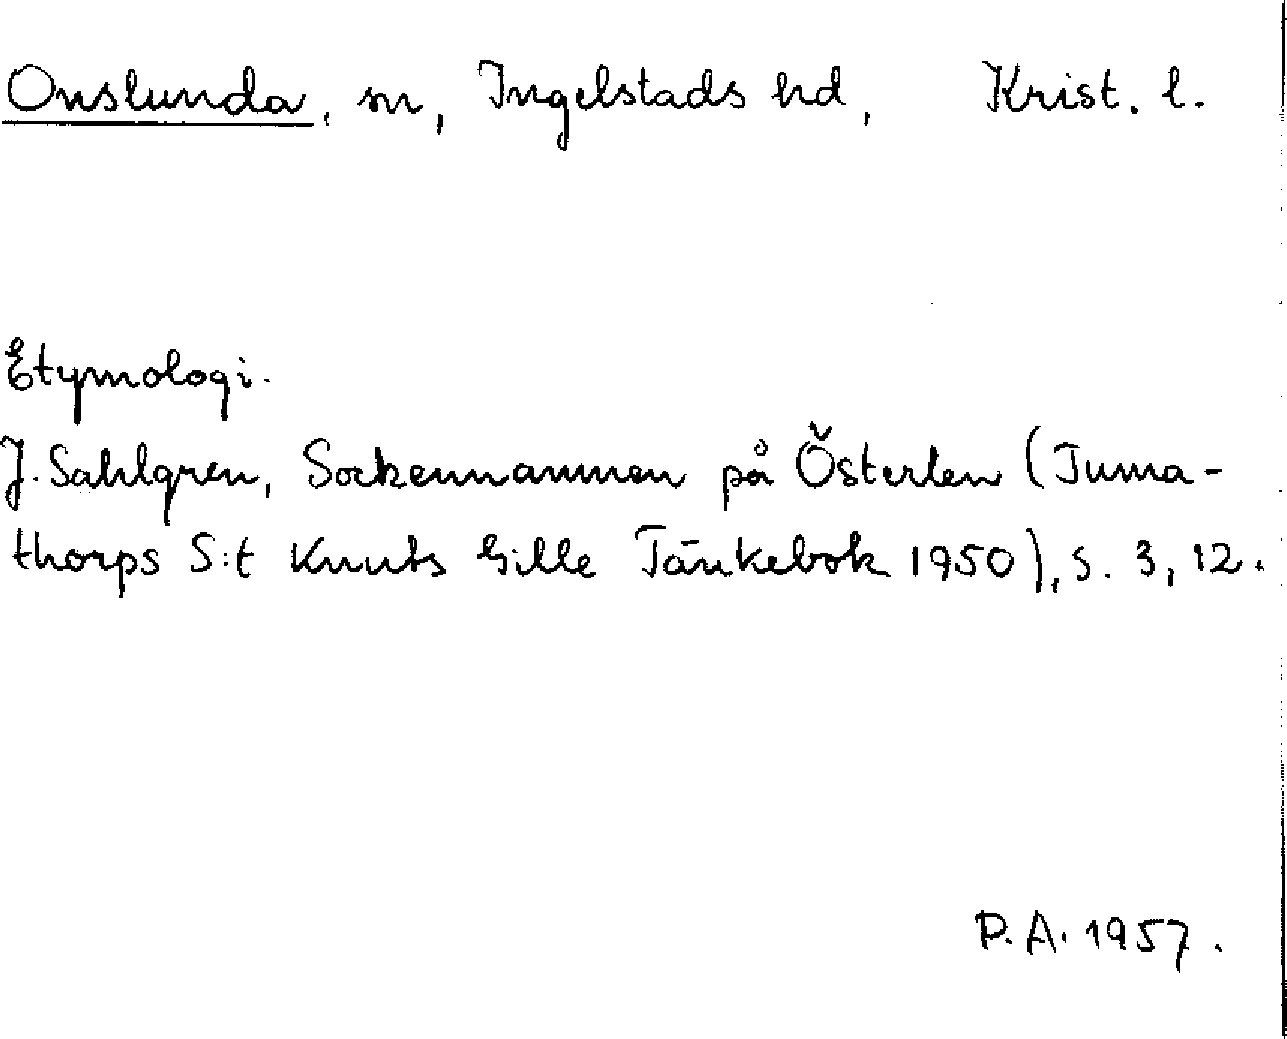 Onslunda, sn, Ingelstads hd, Krist. l.
Etymologi.
J. Sahlgren, Sockennamnen på Österlen (Tuma-
thorps S:t Knuts Gille Tänkebok 1950), s. 3, 12.
P. A. 1957.